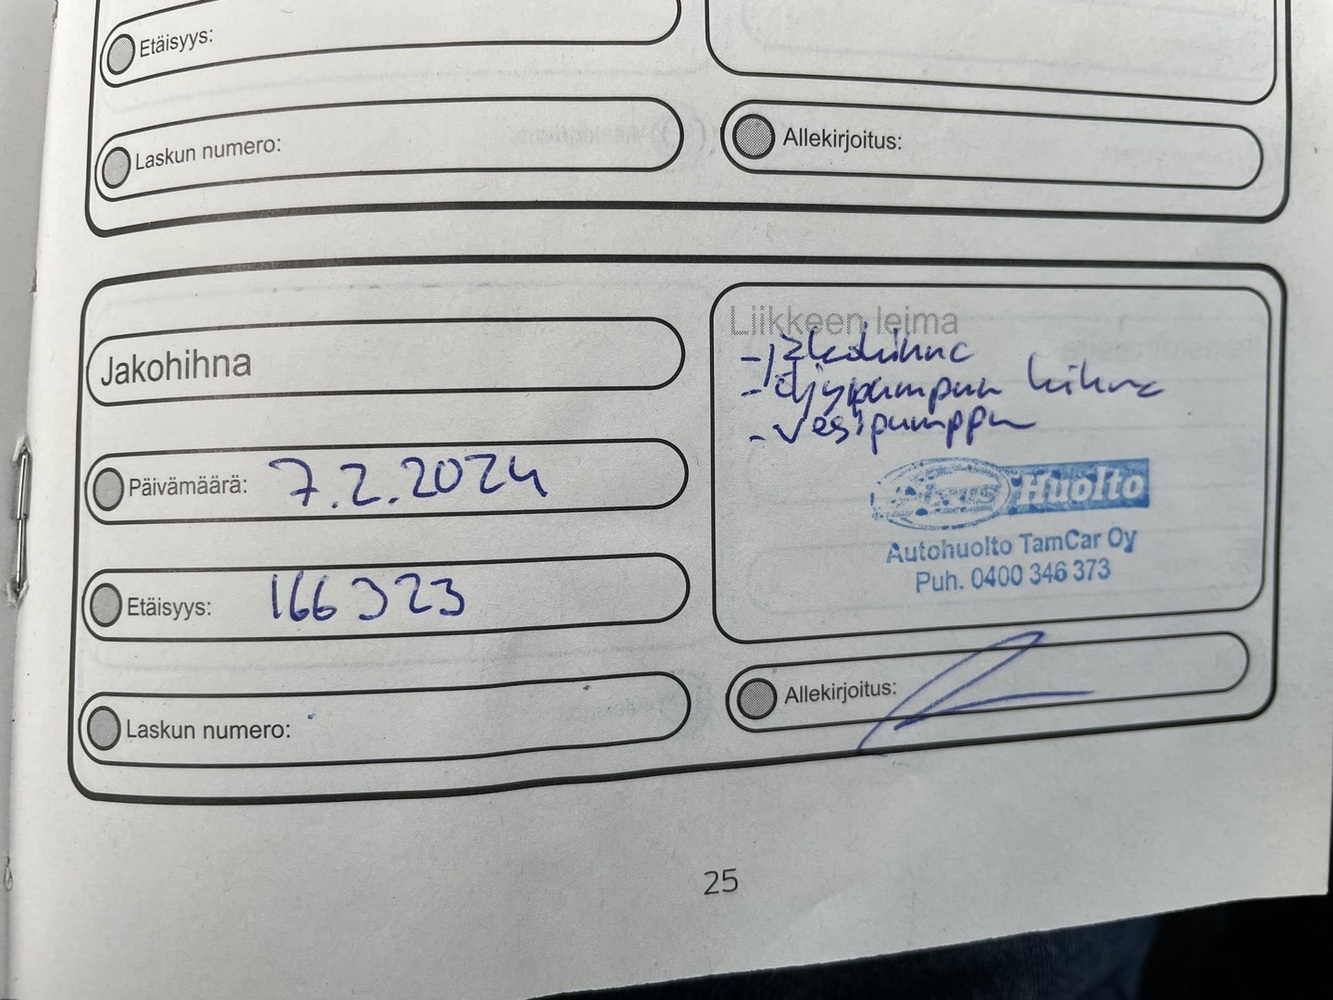 Etäisyys:
Laskun numero:
Allekirjoitus:
Jakohihna
Päivämäärä: 7.2.2024
Etäisyys: 166323
Laskun numero:
Liikkeen leima
- jakohihna
- öljypumpun hihna
- vesipumppu
Fixus Huolto
Autohuolto TamCar Oy
Puh. 0400 346 373
Allekirjoitus:
25